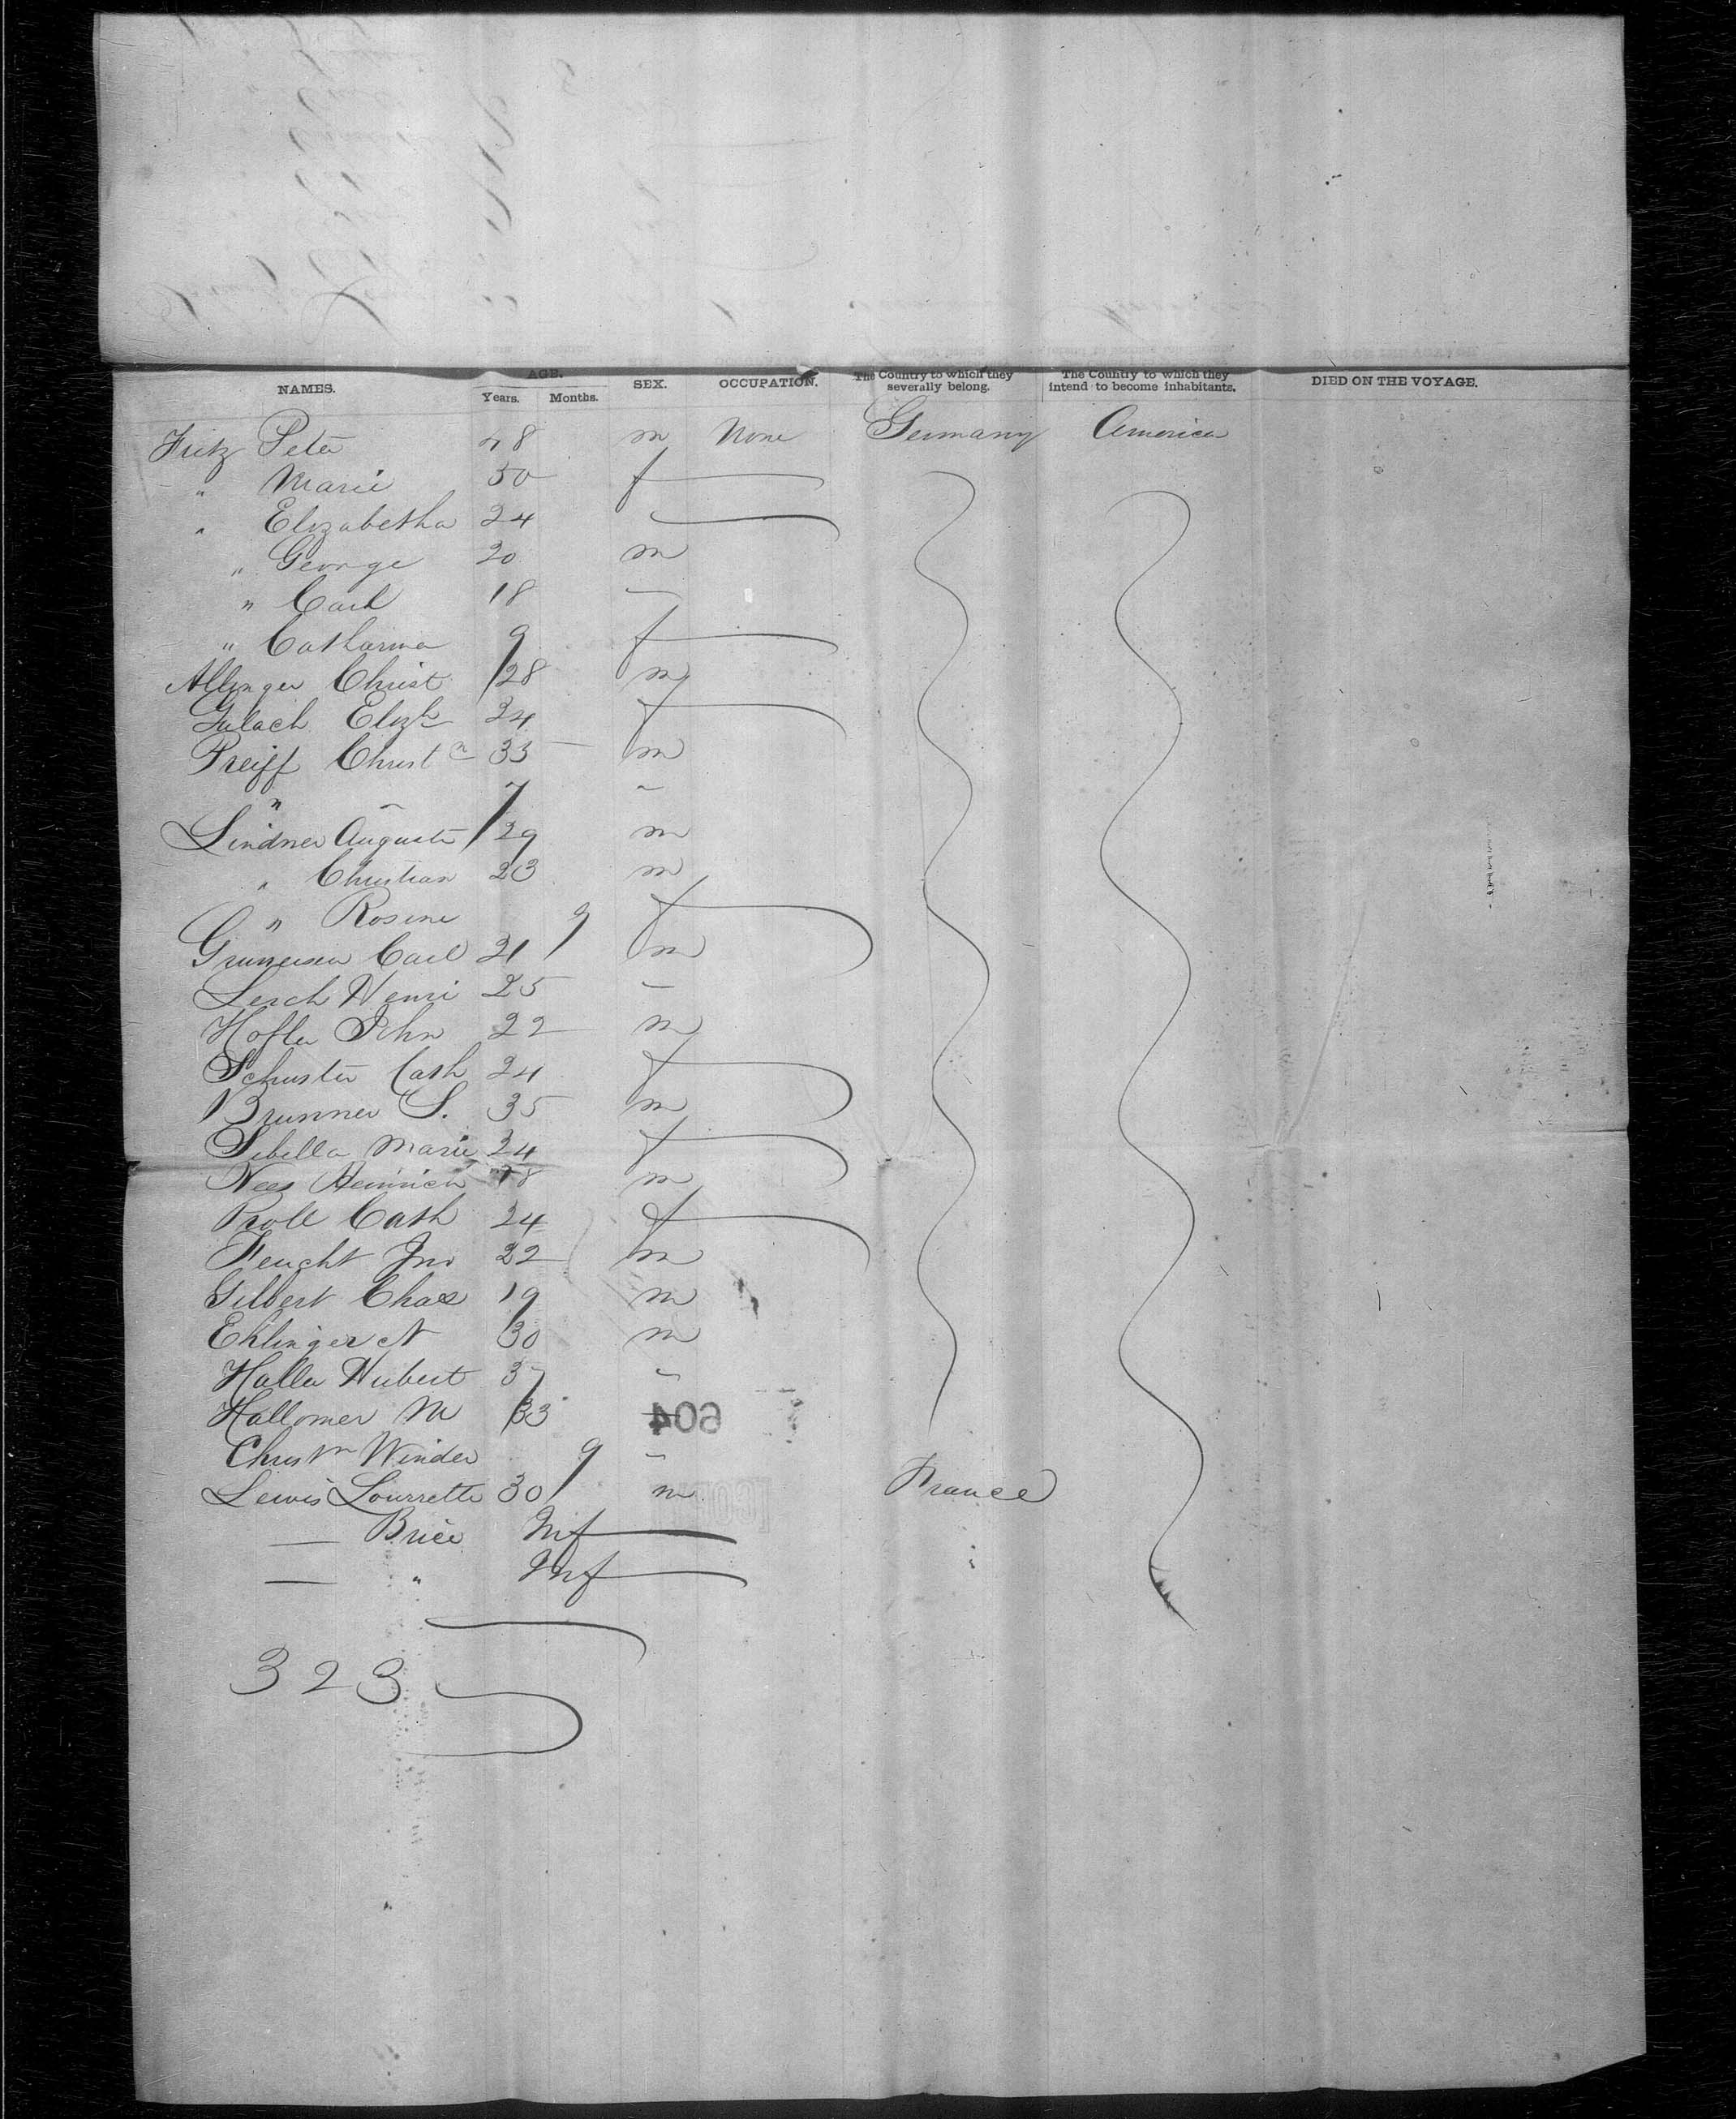 NAMES. AGE. Years. Months. SEX. OCCUPATION. The Country to which they severally belong. The Country to which they intend to become inhabitants. DIED ON THE VOYAGE.
Fritz Peter 48 m None Germany America
" Marie 50 f
" Elizabetha 24
" George 20 m
" Carl 18 —
" Catharina 9 f
Allinger Christ 28 m
Eliz 24 f
Preiff Christ 33 m
" 7
Lindner August 29 m
" Christian 23 m
" Rosine 9 f
Carl 21 m
Lerch Henri 25 —
Hofler John 22 m
Schuster Cath 24 f
Brunner S. 35 m
Sibella Marie 24 f
Nees Heinrich 18 m
Proll Cath 24 f
Feucht Jno 22 m
Gilbert Chas 19 m
Ehlinger N 30 m
Haller Hubert 37 "
Hallomer M 33
604
Christn Winder 9 "
Lewis Lourrette 30 m France
— Brice Inf
— " Inf "
323